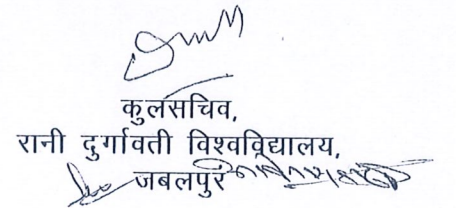 कुलसचिव,
रानी दुर्गावती विश्वविद्यालय,
जबलपुर